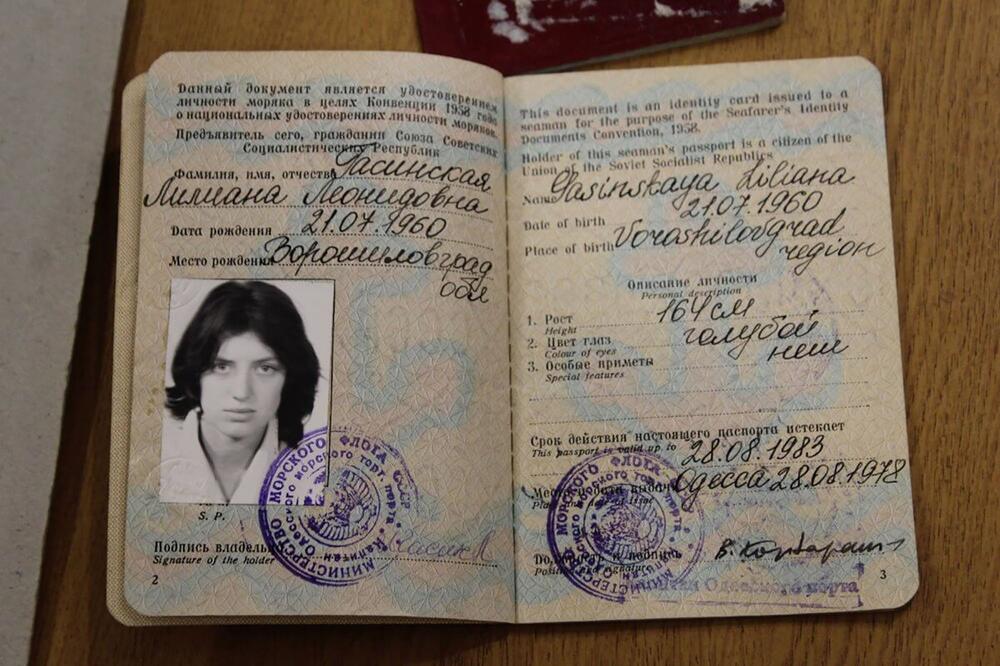 Данный документ является удостоверением
личности моряка в целях Конвенции 1958 года
о национальных удостоверениях личности моряков.
Предъявитель сего, гражданин Союза Советских
Социалистических Республик
Фамилия, имя, отчество Гасинская
Лилиана Леонидовна
Дата рождения 21.07.1960
Место рождения Ворошиловград
обл
S. P.
МИНИСТЕРСТВО МОРСКОГО ФЛОТА СССР
Капитан Одесского морского торг. порта
Подпись владельца
Signature of the holder
2
This document is an identity card issued to a
seaman for the purpose of the Seafarer's Identity
Documents Convention, 1958.
Holder of this seaman's passport is a citizen of the
Union of the Soviet Socialist Republics
Name Gasinskaya Liliana
Date of birth 21.07.1960
Place of birth Voroshilovgrad
region
Описание личности
Personal description
1. Рост 164 см
Height
2. Цвет глаз голубой
Colour of eyes
3. Особые приметы нет
Special features
Срок действия настоящего паспорта истекает
This passport is valid up to 28.08.1983
Одесса 28.08.1978
МИНИСТЕРСТВО МОРСКОГО ФЛОТА
подпись
Одесского порта
3